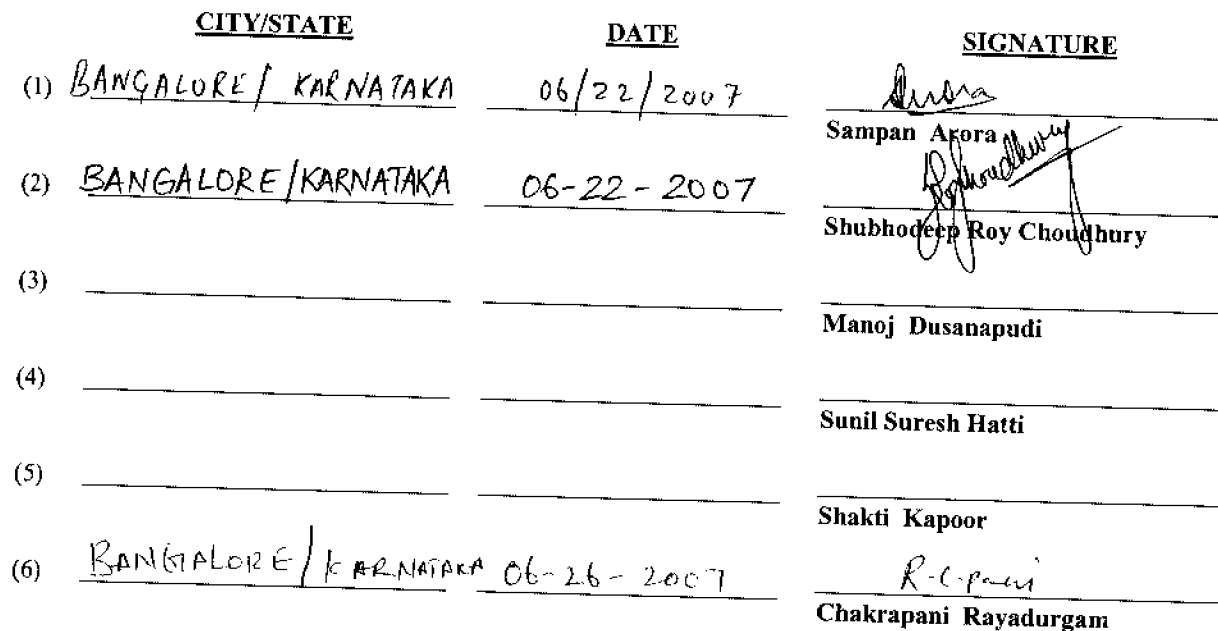 CITY/STATE DATE SIGNATURE
(1) BANGALORE/ KARNATAKA 06/22/2007 Arora
Sampan Arora
(2) BANGALORE/KARNATAKA 06-22-2007 Roy Choudhury
Shubhodeep Roy Choudhury
(3)
Manoj Dusanapudi
(4)
Sunil Suresh Hatti
(5)
Shakti Kapoor
(6) BANGALORE/KARNATAKA 06-26-2007
Chakrapani Rayadurgam